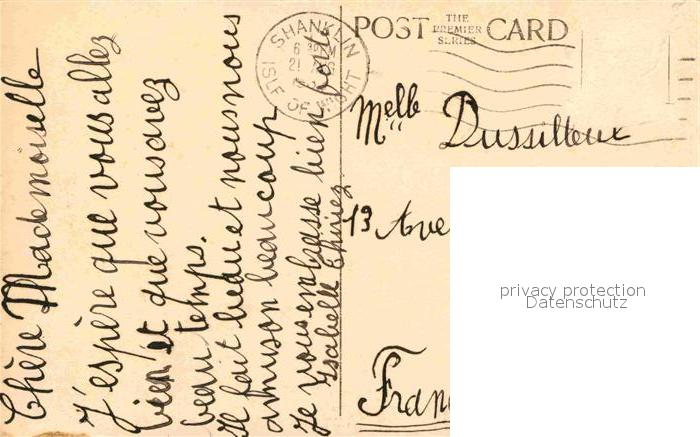 Chère Mademoiselle
J'espère que vous allez
bien et que vous avez
beau temps.
Il fait beau et nous nous
amuson beaucoup
Je vous embrasse bien fort
Isabelle
POST THE PREMIER SERIES CARD
SHANKLIN
ISLE OF WIGHT
Melle Dussilleux
13 Ave
Fran
privacy protection
Datenschutz